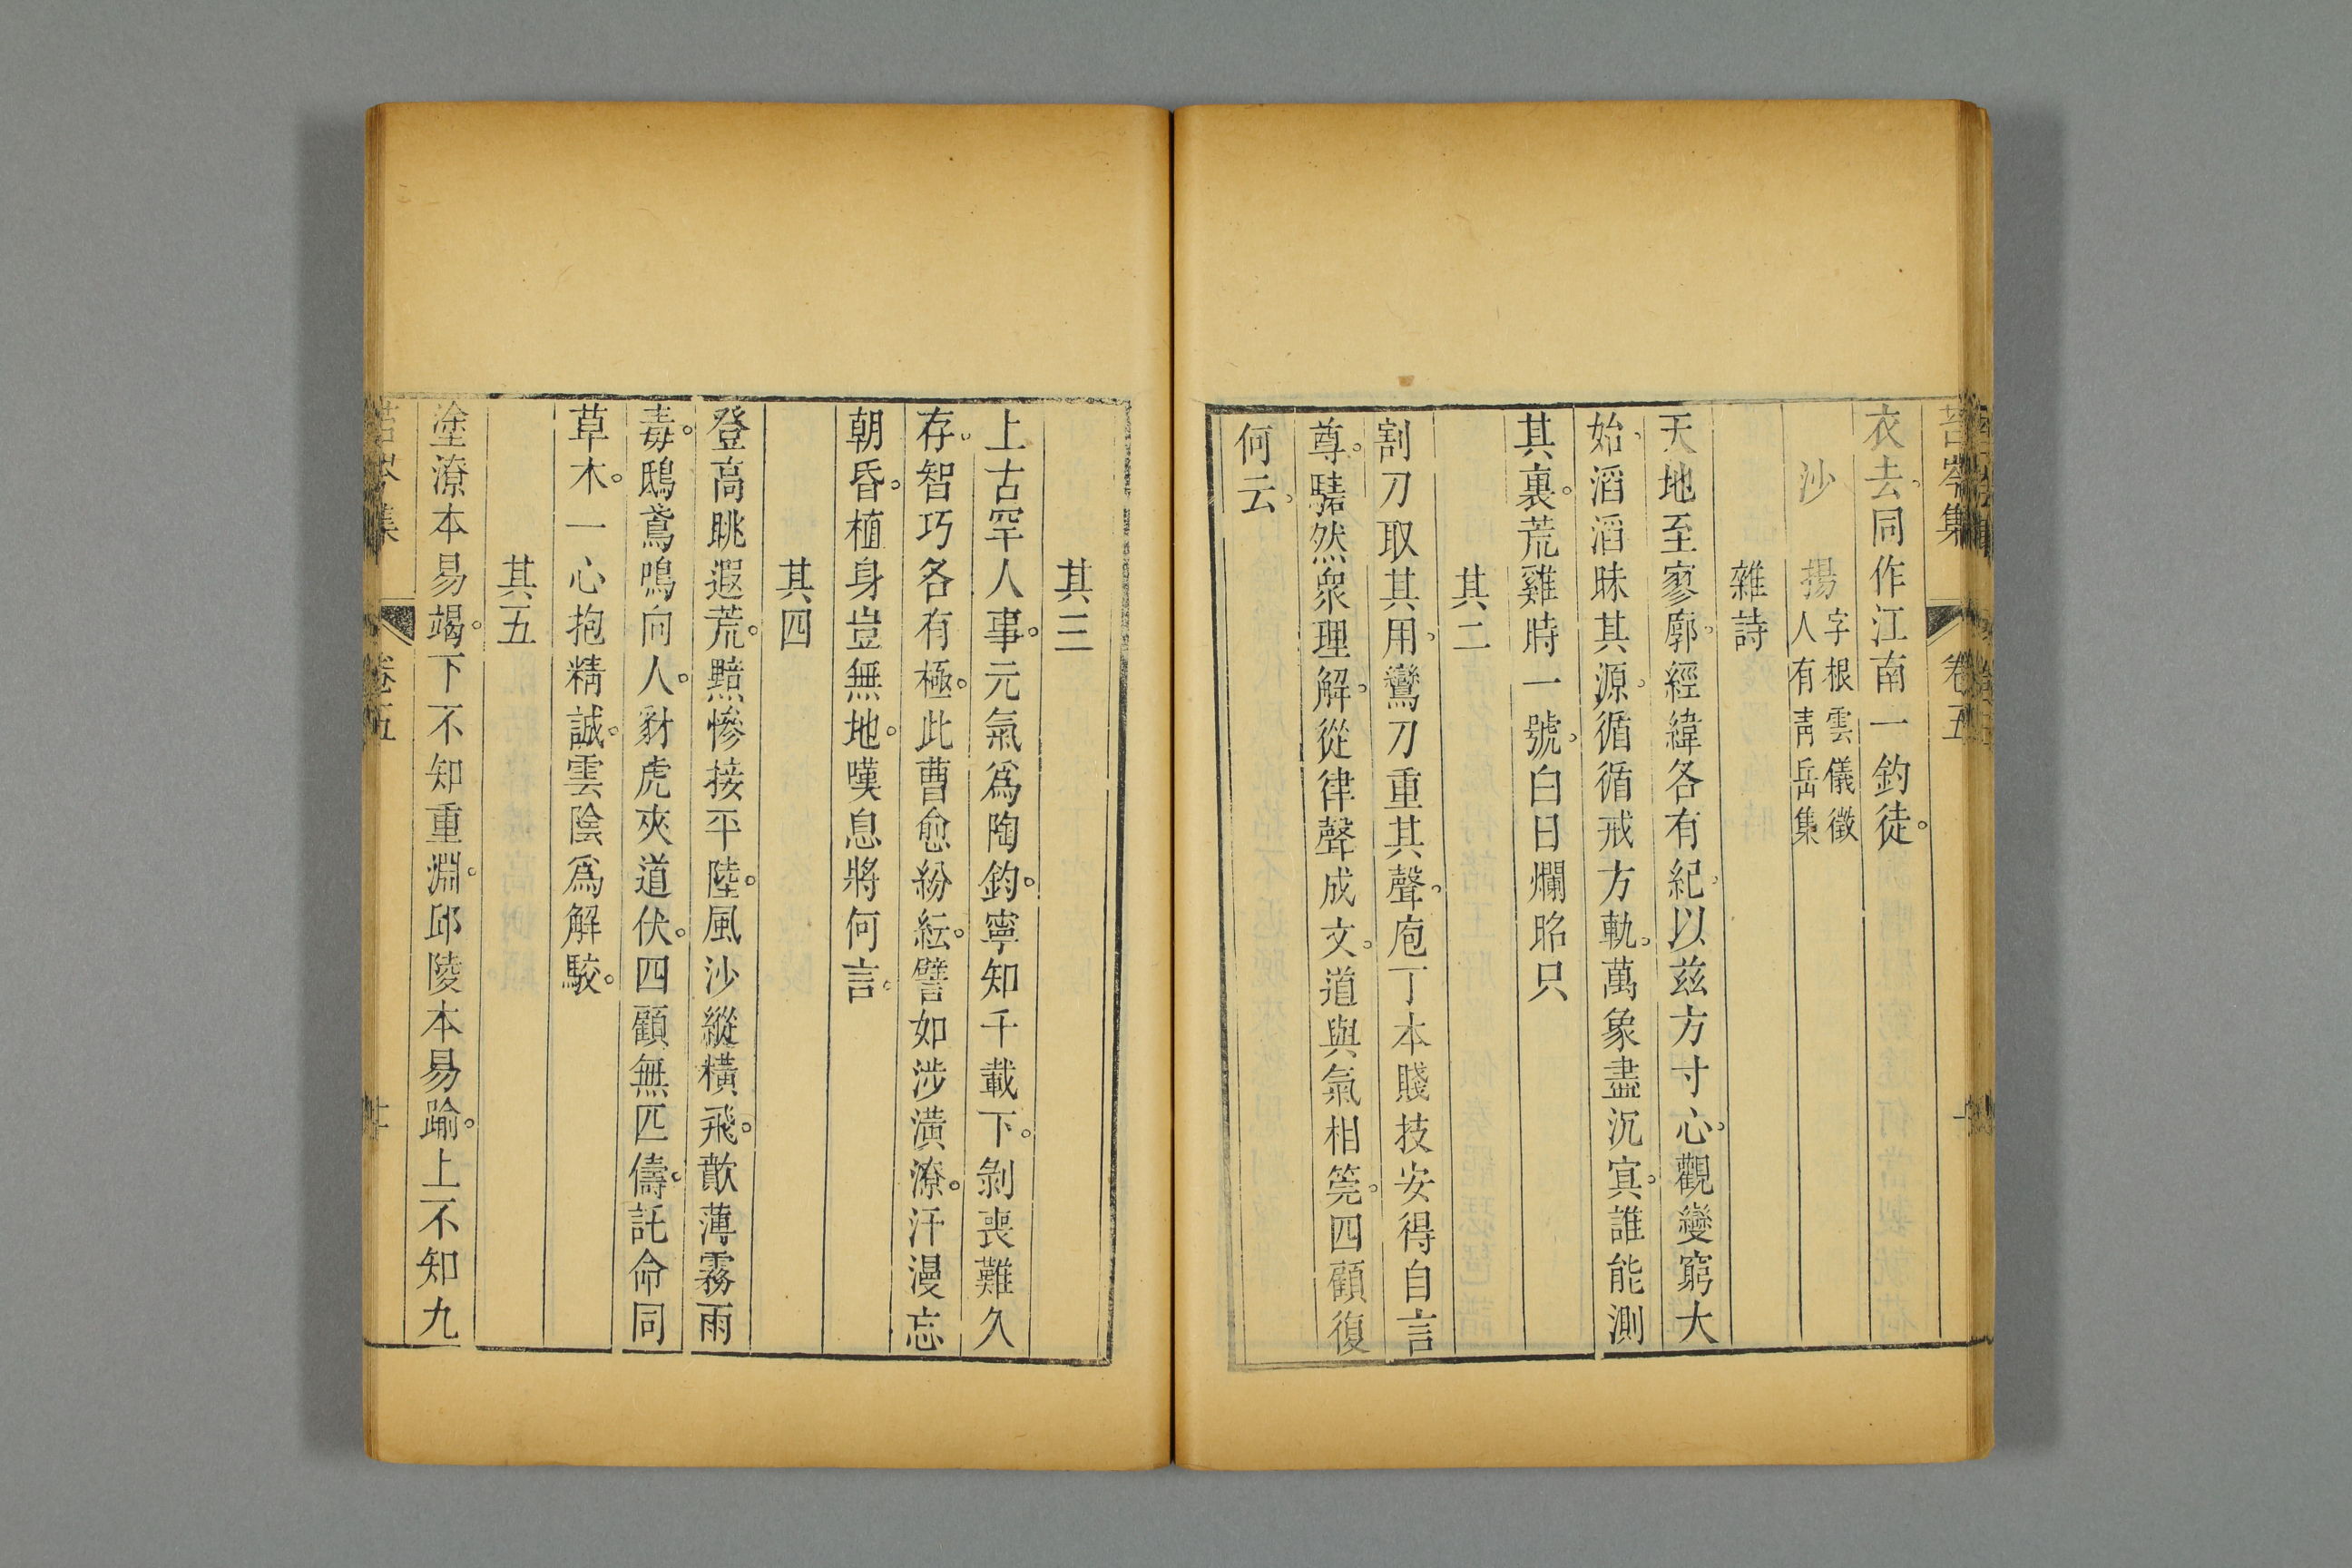 苔岑集 卷五
衣去。同作江南一釣徒。
沙揚字根雲儀徵人有靑岳集
雜詩
天地至寥廓。經緯各有紀。以兹方寸心。觀變窮大
始。滔滔昧其源。循循戒方軌。萬象盡沉冥。誰能測
其裏。荒雞時一號。白日爛昭只
其二
割刀取其用。鸞刀重其聲。庖丁本賤技安得自言
尊。騞然衆理解。從律聲成文。道與氣相筦。四顧復
何云。
其三
上古罕人事。元氣爲陶鈞。寧知千載下。剝喪難久
存。智巧各有極。此曹愈紛紜。譬如涉潢潦。汗漫忘
朝昏。植身豈無地。嘆息將何言。
其四
登高眺遐荒。黯慘接平陸。風沙縱橫飛。歊薄霧雨
毒。鴟鳶鳴向人。豺虎夾道伏。四顧無匹儔。託命同
草木。一心抱精誠。雲陰爲解駮。
其五
塗潦本易竭。下不知重淵。邱陵本易踰。上不知九
苔岑集 卷五